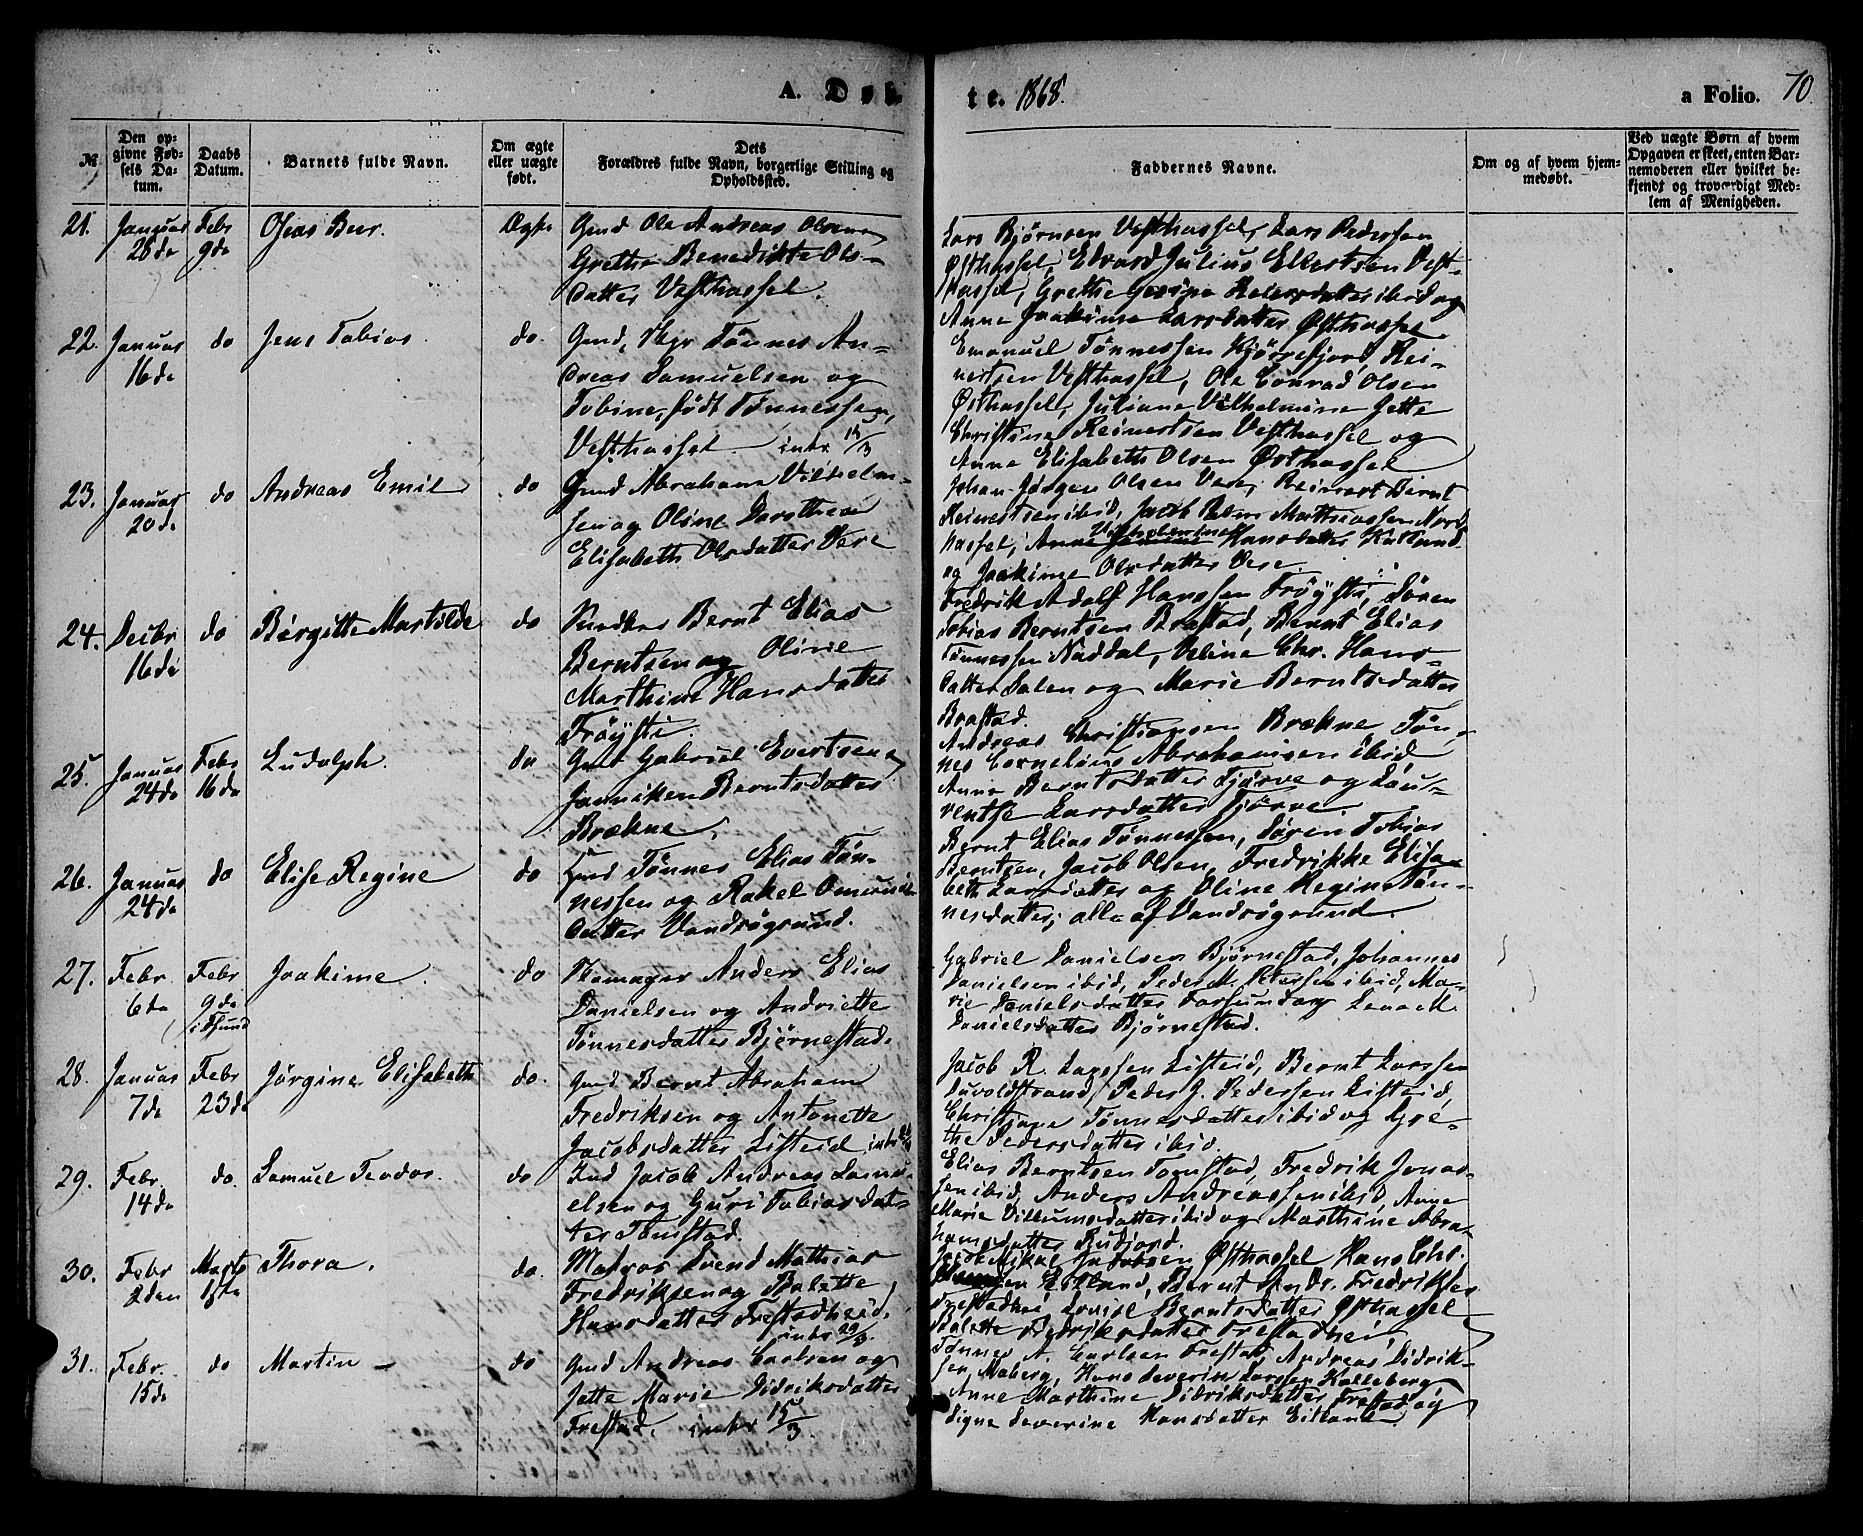 A. Døb
te. 1868.
a Folio. 70.
№
Den op-
givne Fød-
sels Da-
tum.
Daabs
Datum.
Barnets fulde Navn.
Om ægte
eller uægte
født.
Dets
Forældres fulde Navn, borgerlige Stilling og
Opholdssted.
Faddernes Navne.
Om og af hvem hjem-
medøbt.
Ved uægte Børn af hvem
Opgaven er skeet, enten Bar-
nemoderen eller hvilket be-
kjendt og troværdigt Med-
lem af Menigheden.
21. Januar 28de
Febr 9de
Oseas Ber.
Ægte
Gmd Ole Andreas Olsen og
Grethe Benedikte Ols-
datter Vesthassel.
Lars Bjørnsen Vesthassel, Lars Pedersen
Østhassel, Edvard Julius Ellertsen Vest-
hassel, Grethe Gesine Reiersdatter ibid og
Anne Joakime Larsdatter Østhassel
22. Januar 16de
do
Jens Tobias.
do.
Gmd, Tønnes An-
dreas Samuelsen og
Tobine, født Tønnessen,
Vesthassel intr 15/3
Emanuel Tønnessen Kjørrefjord, Rei-
nertsen Vesthassel, Ole Conrad Olsen
Østhassel, Juliane Vilhelmine Jette
Christine Reinertsen Vesthassel og
Anne Elisabeth Olsen Østhassel
23. Januar 20de
do
Andreas Emil
do
Gmd Abraham Vilhelm-
sen og Oline Dorothea
Elisabeth Olsdatter Vere
Johan Jørgen Olsen Vere, Reinert Bernt
Reinertsen ibid, Jacob Mathiassen Nord-
hassel, Anne Vilhelmine Hansdatter
og Joakime Olsdatter Vere
24. Decbr 16de
do
Birgitte Martilde
do
Bernt Elias
Berntsen og Oline
Marthine Hansdatter
Frøysti.
Fredrik Adolf Hanssen Frøysti, Søren
Tobias Berntsen Brastad, Bernt Elias
Tønnessen Nøddal, Veline Chr. Hans-
datter Salen og Marie Berntsdatter
Brastad.
25. Januar 24de
Febr 16de
Ludolph.
do
Gmd Gabriel Evertsen og
Janniken Berntsdatter
Brækne.
Andreas Christiansen Brækne, Tøn-
nes Cornelius Abrahamsen ibid
Anne Berntsdatter Tjørve og Lau-
rentse Larsdatter Tjørve.
26. Januar 24de
do
Elise Regine
do
Gmd Tønnes Elias Tøn-
nessen og Rakel Omunds-
datter Vandrøgrund.
Bernt Elias Tønnessen, Søren Tobias
Berntzen, Jacob Olsen, Fredrikke Elisa-
beth Larsdatter og Oline Regine Tøn-
nesdatter, alle af Vandrøgrund.
27. Febr 6de
Febr 9de
i Fsund
Joakime.
do
Anders Elias
Danielsen og Andriette
Tønnesdatter Bjørnestad.
Gabriel Danielsen Bjørnestad, Johannes
Danielsen ibid, Peder M. Petersen ibid, Ma-
rie Danielsdatter Farsund og
Danielsdatter Bjørnestad.
28. Januar 7de
Febr 23de
Jørgine Elisabeth
do.
Gmd Bernt Abraham
Fredriksen og Antonette
Jacobsdatter Listeid intr
Jacob R. Listeid, Bernt Larssen
Peder J. Pedersen Listeid,
Christiane Tønnesdatter ibid og Gre-
the Pedersdatter ibid.
29. Febr. 14de
do.
Samuel Teodor.
do
Ind Jacob Andreas Samu-
elsen og Guri Tobiasdat-
ter Tomstad.
Elias Berntsen Tomstad, Fredrik Jonas-
sen ibid, Anders Andreassen ibid, Anne
Marie Villumsdatter ibid og Marthine Abra-
hamsdatter Rudjord.
30. Febr 2den
Marts 1ste
Thora.
do.
Matros Svend Mathias
Fredriksen og Bolette
Hansdatter Frestadheid.
intr 29/3.
Jacob Mikal Østhassel Hans Chr.
Eitland, Bernt Andr. Fredriksen
Frestadhei, Lovise Berntsdatter Østhassel
Bolette Fredriksdatter Frestadhei
31. Febr. 15de
do
Martin –
do
Gmd Andreas Carlsen og
Jette Marie Didriksdatter
Frestad. intr 15/3
Tønnes A. Carlsen Frestad, Andreas Didrik-
sen, Maberg, Hans Severin Larssen Kalleberg
Anne Marthine Didriksdatter Frestad og
Signe Severine Hansdatter Eitland